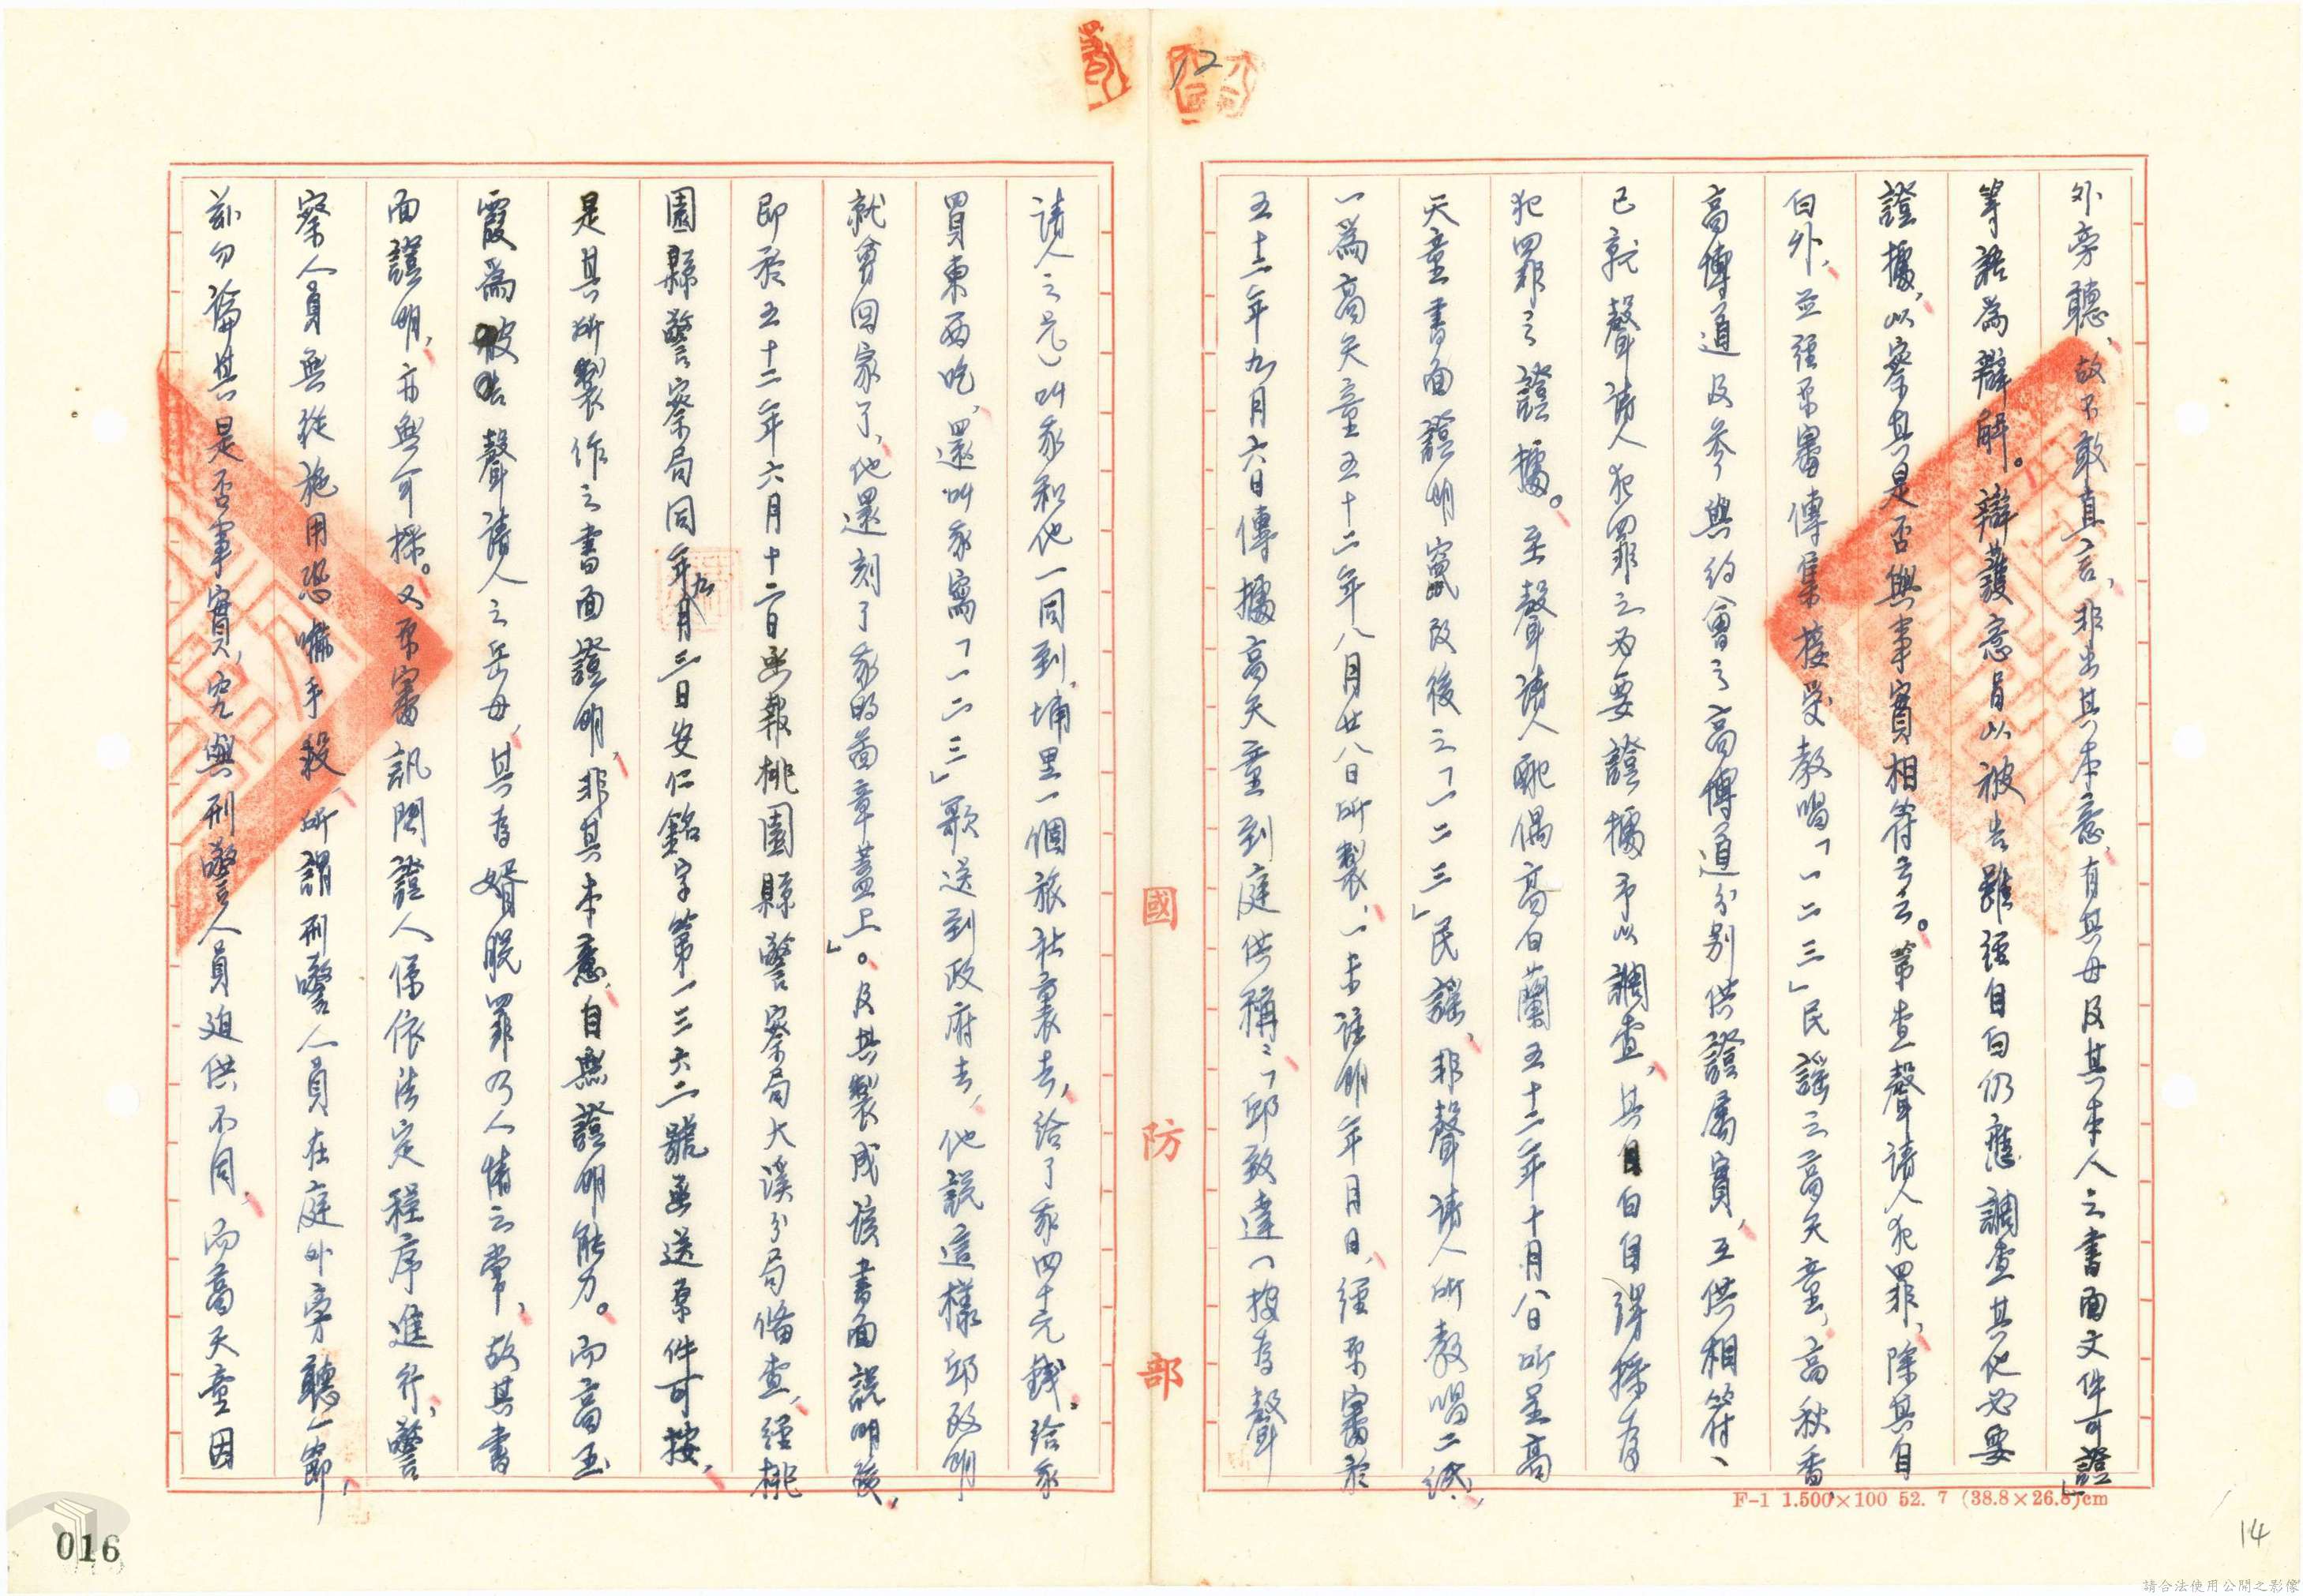 12
外旁聽、故不敢直言、非出其本意、有其母及其本人之書面文件可證」
等語為辯解。辯護意旨以被告雖經自白仍應調查其他必要
證據、以察其是否與事實相符云云。第查聲請人犯罪、除其自
白外、並經原審傳集接受教唱「一二三」民謠之高天童、高秋香、
高博道及參與約會之高博道分別供證屬實、互供相符、
已就聲請人犯罪之必要證據予以調查、其自白自得採為
犯罪之證據。至聲請人配偶高白蘭五十二年十月八日所呈高
天童書面證明竄改後之「一二三」民謠、非聲請人所教唱二紙、
一為高天童五十二年八月廿八日所製、一未註明年月日、經原審於
五十二年九月六日傳據高天童到庭供稱：「邱致達(按為聲
請人之兄)叫我和他一同到埔里一個旅社裏去、給了我四十元錢、給我
買東西吃、還叫我寫「一二三」歌送到政府去、他說這樣邱致明
就會回家了、他還刻了我的圖章蓋上」。及其製成該書面說明後、
即於五十二年六月十二日函報桃園縣警察局大溪分局備查、經桃
園縣警察局同年九月三日安仁銘字第一三六二號函送原件可按、
是其所製作之書面證明、非其本意、自無證明能力。而高玉
霞為聲請人之岳母、其為婿脫罪乃人情之常、故其書
面證明、亦無可採。又原審訊問證人係依法定程序進行、警
察人員無從施用恐嚇手段、所謂刑警人員在庭外旁聽一節、
茲勿論其是否事實、究與刑警人員迫供不同、而高天童因
國防部
F-1 1.500×100 52. 7 (38.8×26.8)cm
14
016
請合法使用公開之影像